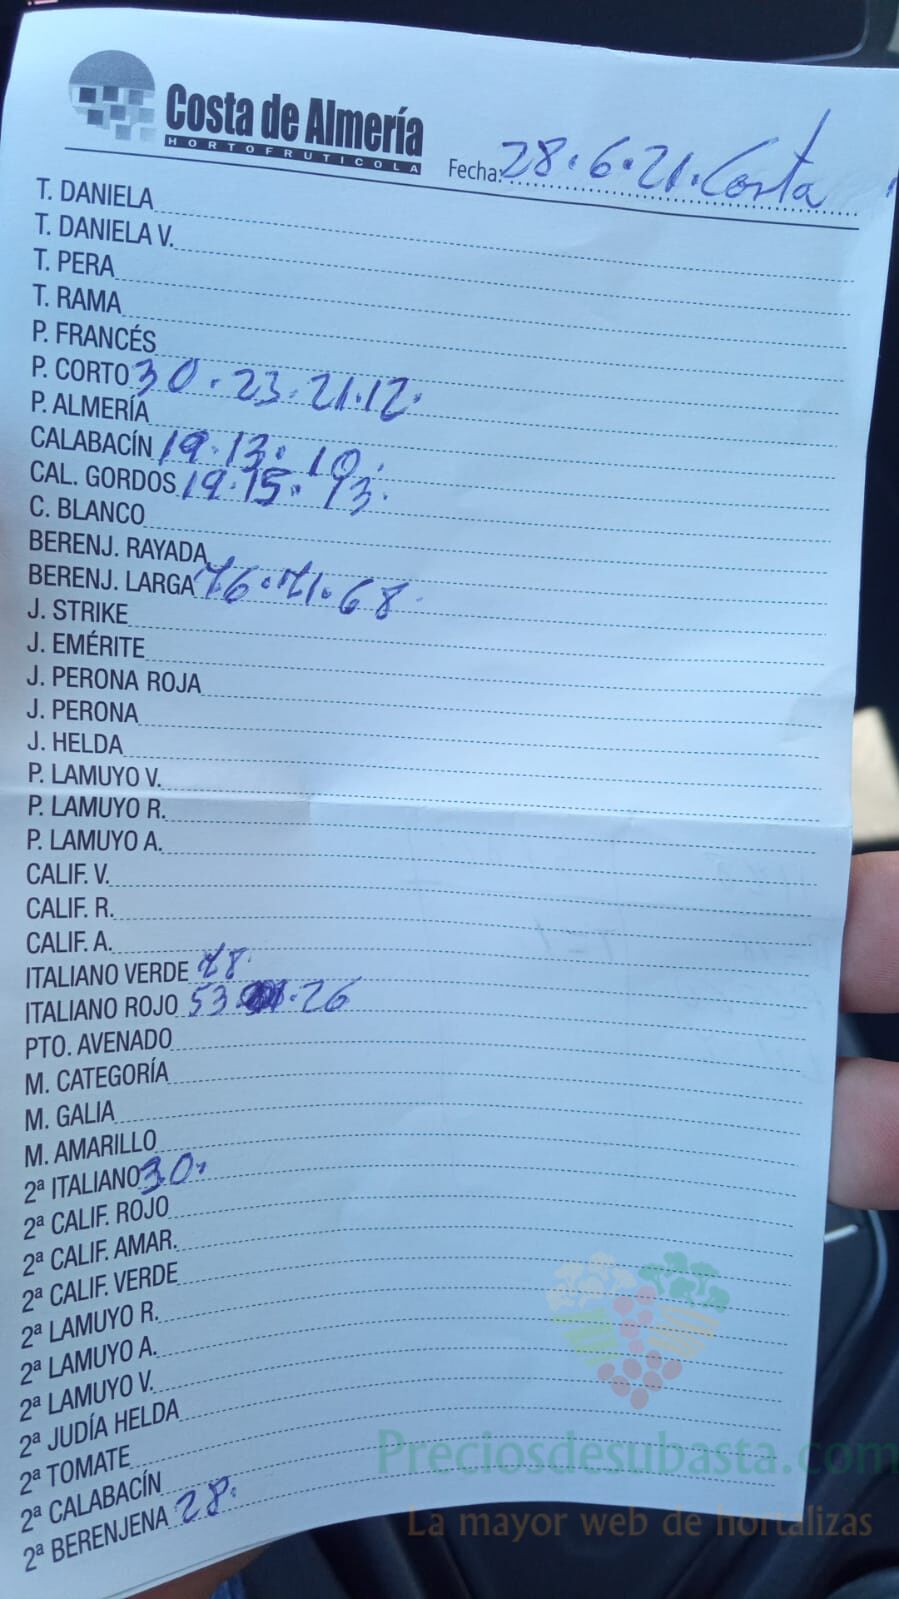 Costa de Almería
HORTOFRUTICOLA
Fecha: 28.6.21. Costa
T. DANIELA
T. DANIELA V.
T. PERA
T. RAMA
P. FRANCÉS
P. CORTO 30.23.21.12.
P. ALMERÍA
CALABACÍN 19.13.10.
CAL. GORDOS 19.15.13.
C. BLANCO
BERENJ. RAYADA
BERENJ. LARGA 76.71.68.
J. STRIKE
J. EMÉRITE
J. PERONA ROJA
J. PERONA
J. HELDA
P. LAMUYO V.
P. LAMUYO R.
P. LAMUYO A.
CALIF. V.
CALIF. R.
CALIF. A.
ITALIANO VERDE 78.
ITALIANO ROJO 53. .26
PTO. AVENADO
M. CATEGORÍA
M. GALIA
M. AMARILLO
2ª ITALIANO 30.
2ª CALIF. ROJO
2ª CALIF. AMAR.
2ª CALIF. VERDE
2ª LAMUYO R.
2ª LAMUYO A.
2ª LAMUYO V.
2ª JUDÍA HELDA
2ª TOMATE
2ª CALABACÍN
2ª BERENJENA 28.
Preciosdesubasta.com
La mayor web de hortalizas